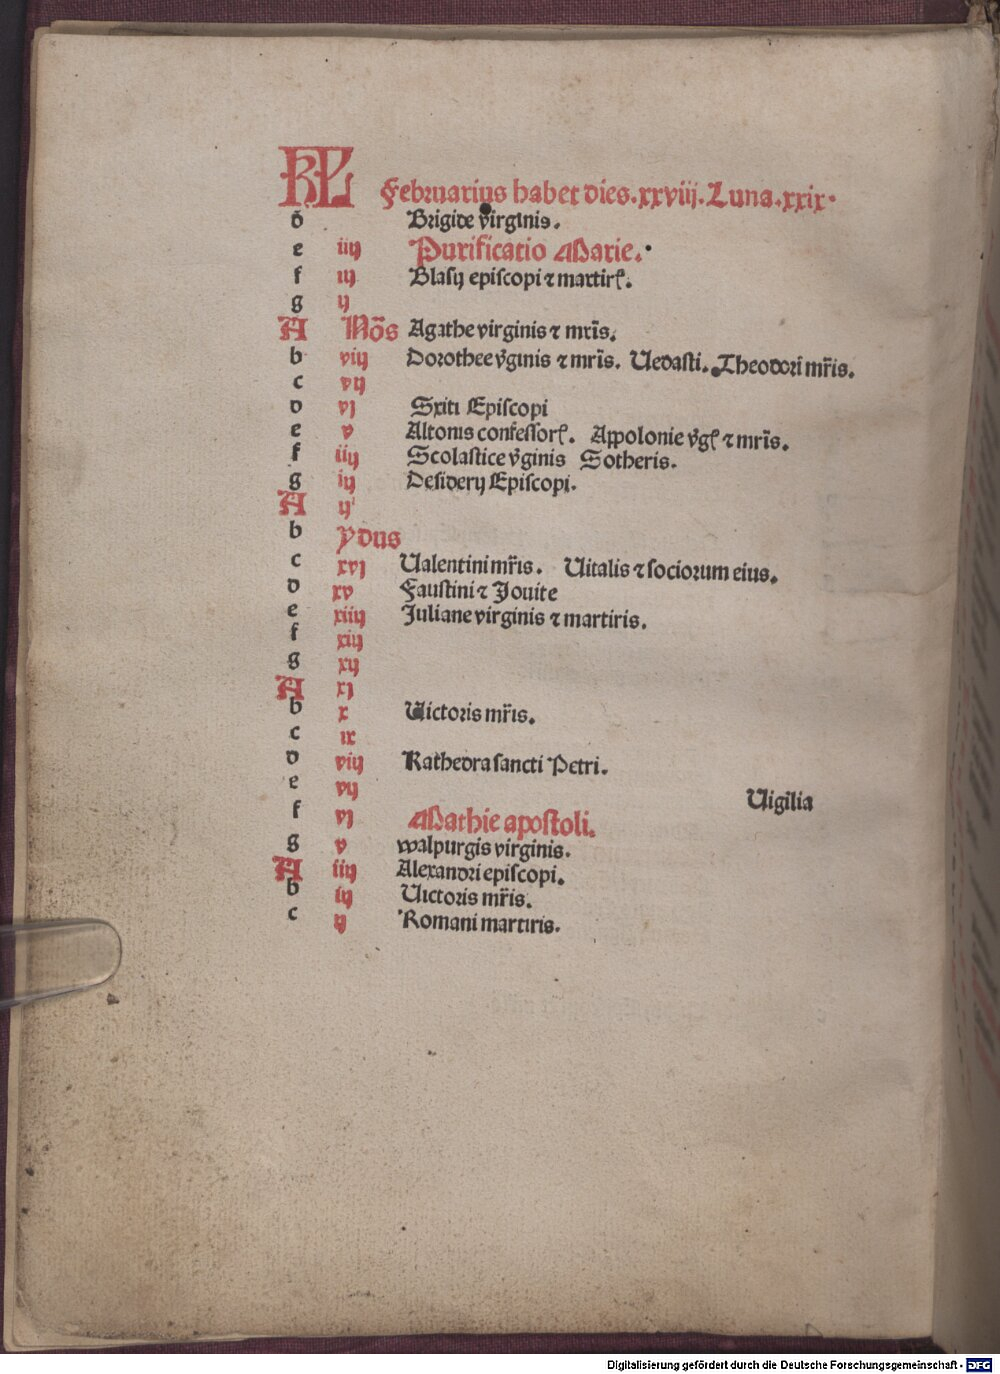 KL Februarius habet dies.xxviij.Luna.xxix.
d Brigide virginis.
e iiij Purificatio Marie.
f iij Blasij episcopi ⁊ martirꝭ.
g ij
A Nōs Agathe virginis ⁊ mr̃is.
b viij Dorothee v̓ginis ⁊ mr̃is. Uedasti. Theodori mr̃is.
c vij
d vj Sxiti Episcopi
e v Altonis confessorꝭ. Appolonie v̓gꝭ ⁊ mr̃is.
f iiij Scolastice v̓ginis Sotheris.
g iij Desiderij Episcopi.
A ij
b ydus
c xvj Ualentini mr̃is. Uitalis ⁊ sociorum eius.
d xv Faustini ⁊ Jouite
e xiiij Juliane virginis ⁊ martiris.
f xiij
g xij
A xj
b x Uictoris mr̃is.
c ix
d viij Kathedra sancti Petri.
e vij Uigilia
f vj Mathie apostoli.
g v walpurgis virginis.
A iiij Alexandri episcopi.
b iij Uictoris mr̃is.
c ij Romani martiris.
Digitalisierung gefördert durch die Deutsche Forschungsgemeinschaft - DFG